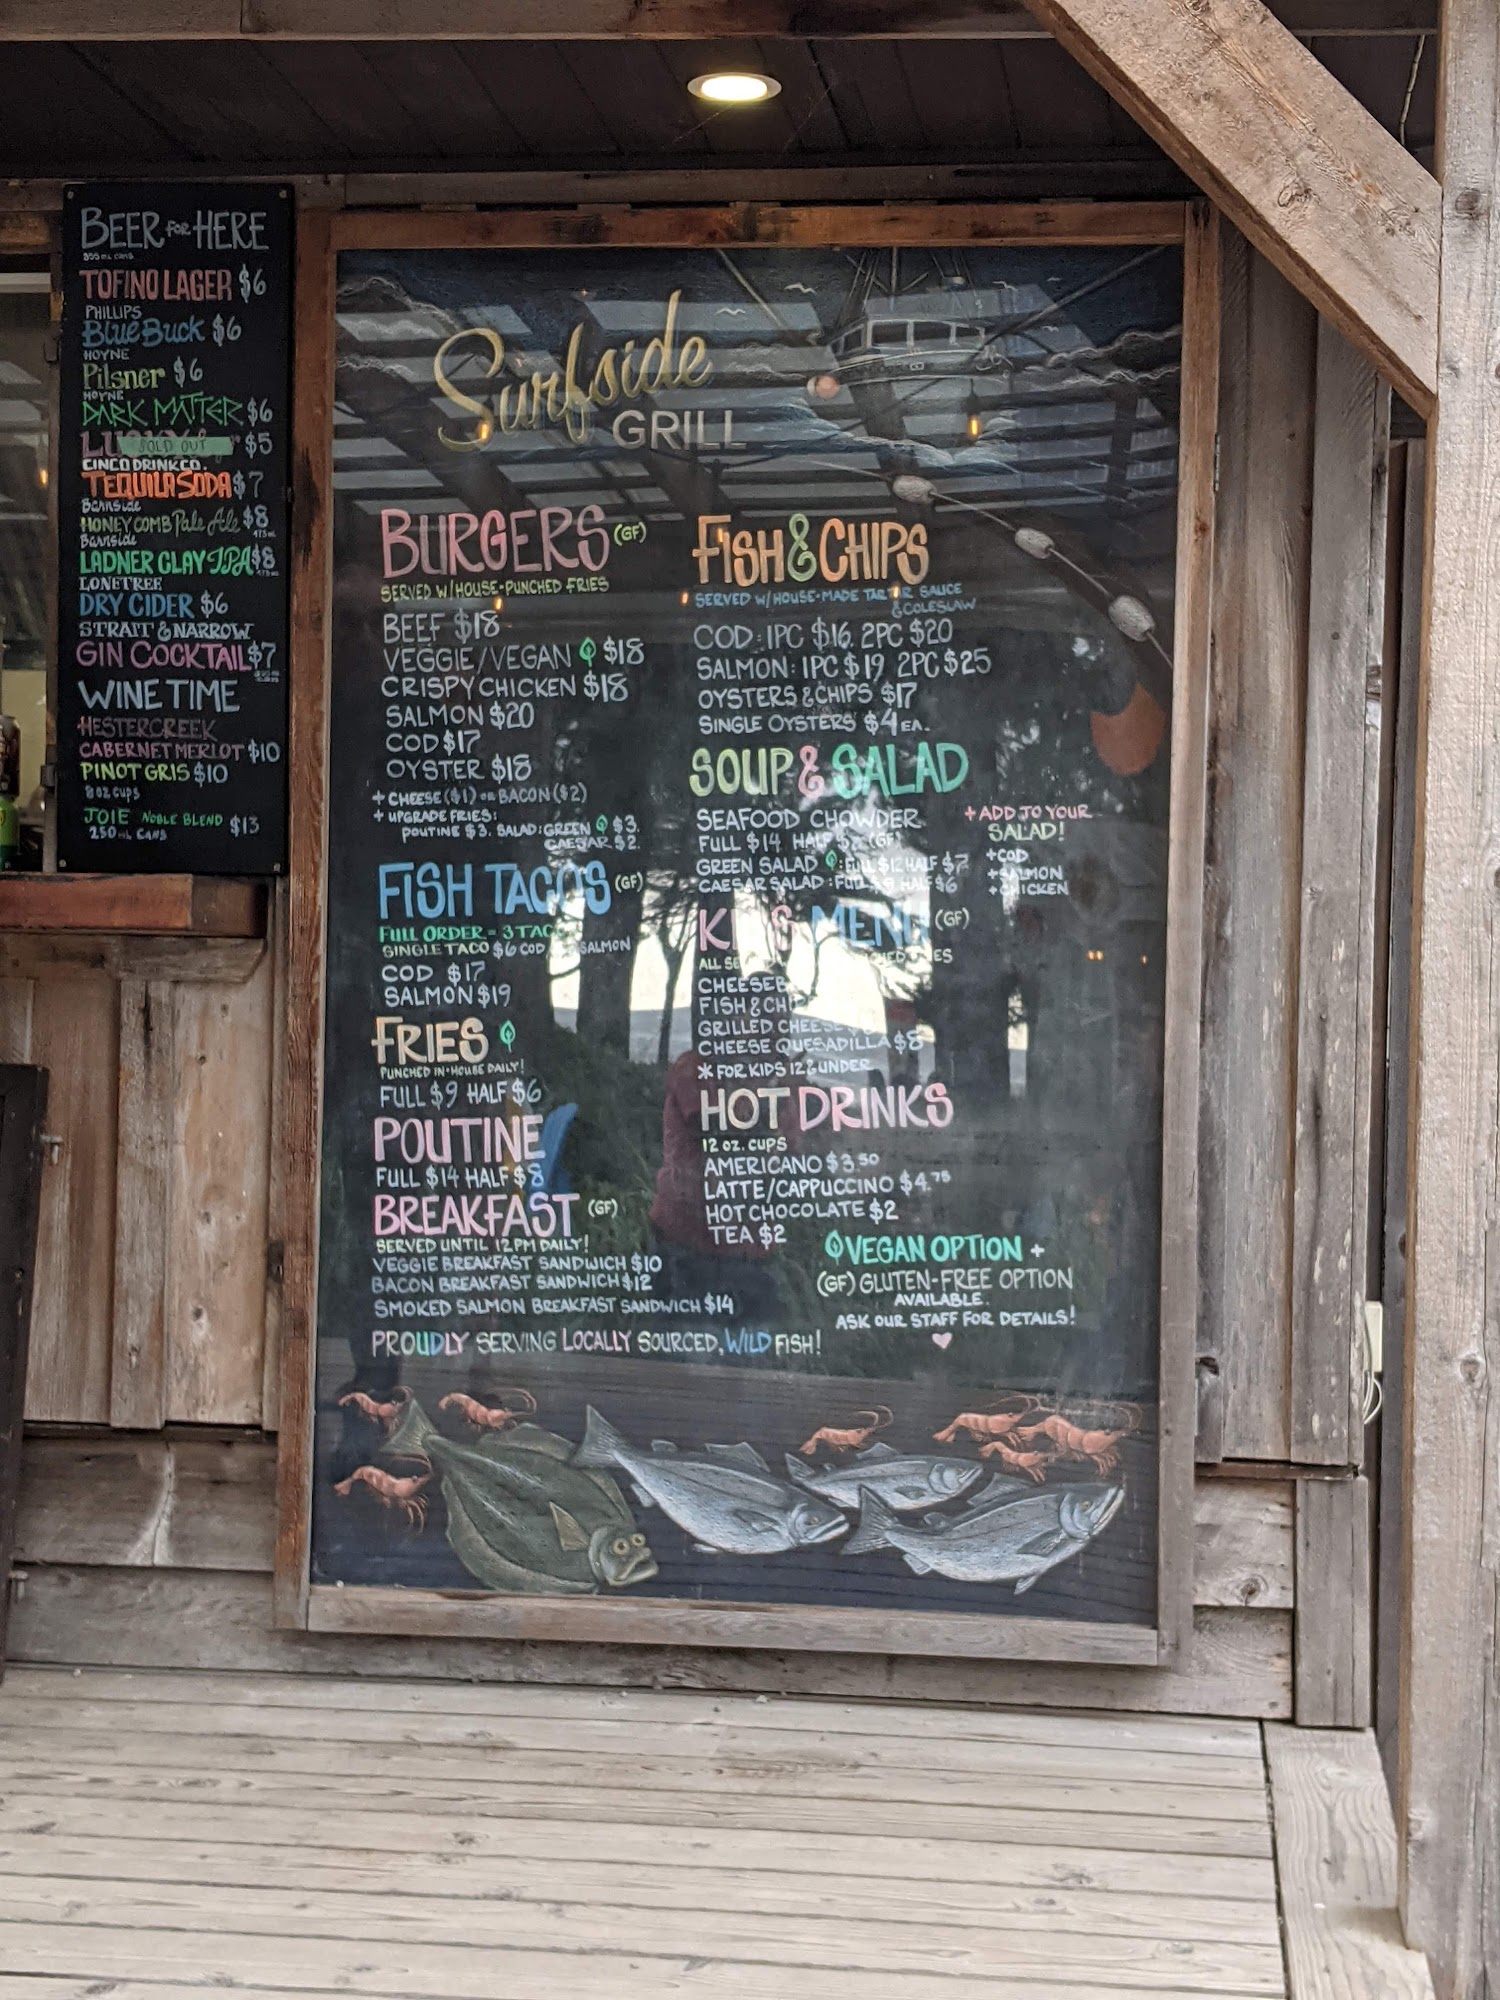 BEER FOR HERE
355 mL CANS
TOFINO LAGER $6
PHILLIPS
BLUE BUCK $6
HOYNE
Pilsner $6
HOYNE
DARK MATTER $6
SOLD OUT $5
CINCO DRINK CO.
TEQUILA SODA $7
Barnside
HONEYCOMB Pale Ale $8
473 mL
Barnside
LADNER CLAY IPA $8
473 mL
LONETREE
DRY CIDER $6
STRAIT & NARROW
GIN COCKTAIL $7
WINE TIME
HESTER CREEK
CABERNET MERLOT $10
PINOT GRIS $10
8 OZ CUPS
JOIE NOBLE BLEND $13
250 mL CANS
Surfside
GRILL
BURGERS (GF)
SERVED W/HOUSE-PUNCHED FRIES
BEEF $18
VEGGIE/VEGAN $18
CRISPY CHICKEN $18
SALMON $20
COD $17
OYSTER $18
+ CHEESE ($1) OR BACON ($2)
+ UPGRADE FRIES:
POUTINE $3. SALAD: GREEN $3.
CAESAR $2.
FISH TACOS (GF)
FULL ORDER = 3
SINGLE TACO $6 COD SALMON
COD $17
SALMON $19
FRIES
PUNCHED IN-HOUSE DAILY!
FULL $9 HALF $6
POUTINE
FULL $14 HALF $8
BREAKFAST (GF)
SERVED UNTIL 12PM DAILY!
VEGGIE BREAKFAST SANDWICH $10
BACON BREAKFAST SANDWICH $12
SMOKED SALMON BREAKFAST SANDWICH $14
PROUDLY SERVING LOCALLY SOURCED, WILD FISH!
FISH & CHIPS
SERVED W/HOUSE-MADE TARTAR SAUCE
& COLESLAW
COD: 1PC $16. 2PC $20
SALMON: 1PC $19 2PC $25
OYSTERS & CHIPS $17
SINGLE OYSTERS $4 EA.
SOUP & SALAD
SEAFOOD CHOWDER
FULL $14 HALF (GF)
GREEN SALAD : FULL $12 HALF $7
CAESAR SALAD : FULL HALF $6
+ ADD TO YOUR
SALAD!
+ COD
+ SALMON
+ CHICKEN
KIDS MENU (GF)
ALL
FISH &
GRILLED CHEESE
CHEESE QUESADILLA $8
* FOR KIDS 12 & UNDER
HOT DRINKS
12 OZ. CUPS
AMERICANO $3.50
LATTE/CAPPUCCINO $4.75
HOT CHOCOLATE $2
TEA $2
VEGAN OPTION +
(GF) GLUTEN-FREE OPTION
AVAILABLE.
ASK OUR STAFF FOR DETAILS!